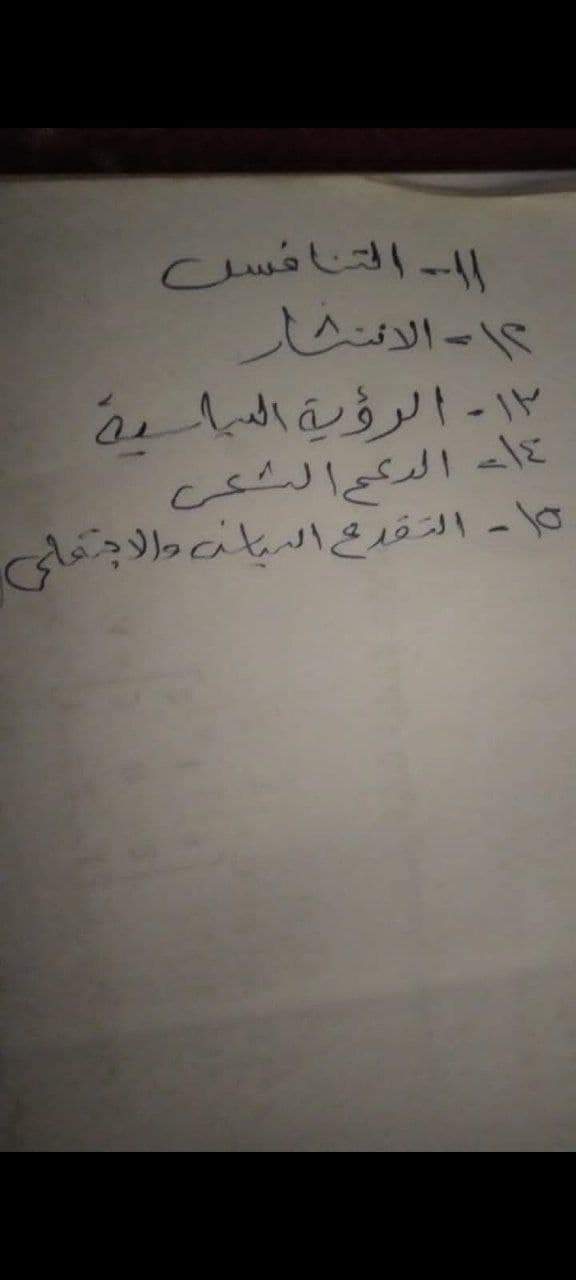 ١١- التنافس
١٢- الانتشار
١٣- الرؤية السياسية
١٤- الدعم الشعبي
١٥- التقدم السياسي والاجتماعي